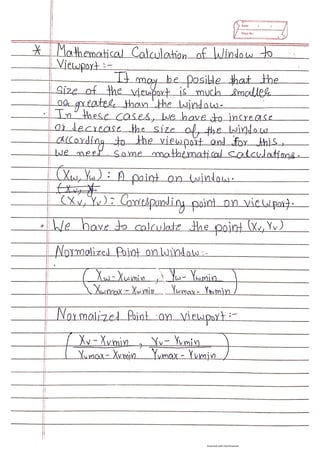 * Mathematical Calculation of Window to
Viewport :-
It may be posible that the
size of the viewport is much smaller
or greater than the window.
• In these cases, we have to increase
or decrease the size of the window
according to the viewport and for this,
we need some mathematical calculations.
(Xw, Yw) : A point on window.
(Xv, Yv) : Corresponding point on viewport.
• We have to calculate the point (Xv, Yv)
Normalized Point on Window :-
( Xw - Xwmin , Yw - Ywmin )
( Xwmax - Xwmin Ywmax - Ywmin )
Normalized Point on Viewport :-
( Xv - Xvmin , Yv - Yvmin )
( Xvmax - Xvmin Yvmax - Yvmin )